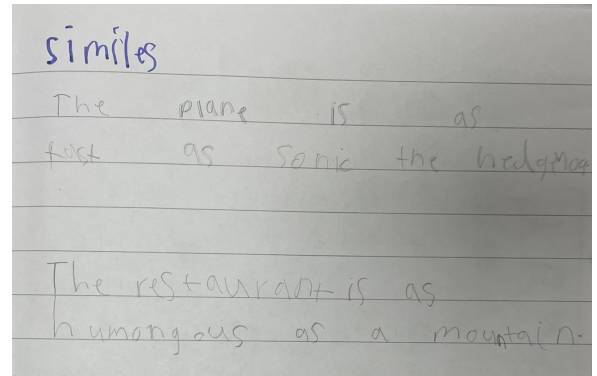 similes
The plane is as
fast as sonic the hedgehog
The restaurant is as
humongous as a mountain.